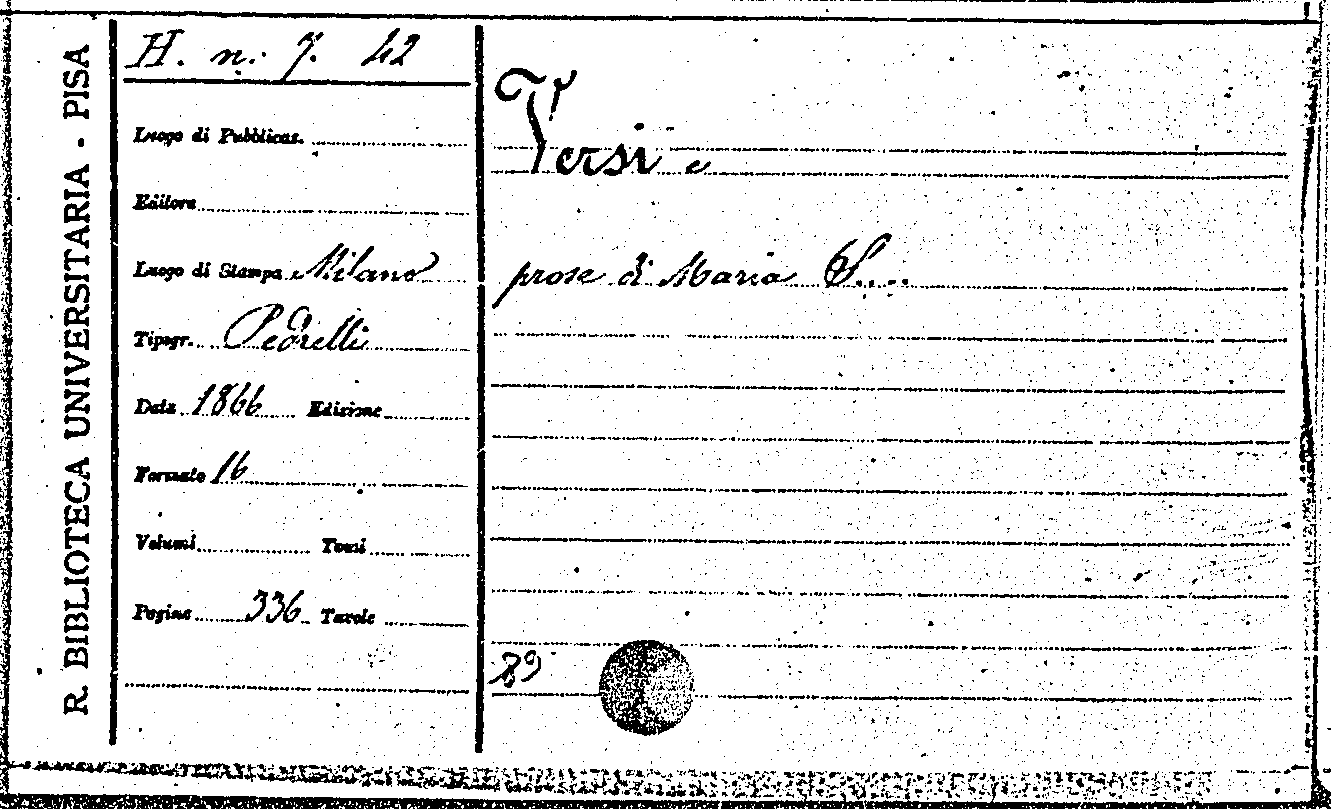 R. BIBLIOTECA UNIVERSITARIA - PISA
H. n: 7. 42
Luogo di Pubblicaz.
Editore
Luogo di Stampa Milano
Tipogr. Pedrelli
Data 1866 Edizione
Formato 16
Volumi Tomi
Pagine 336 Tavole
Versi e
prose di Maria S....
89